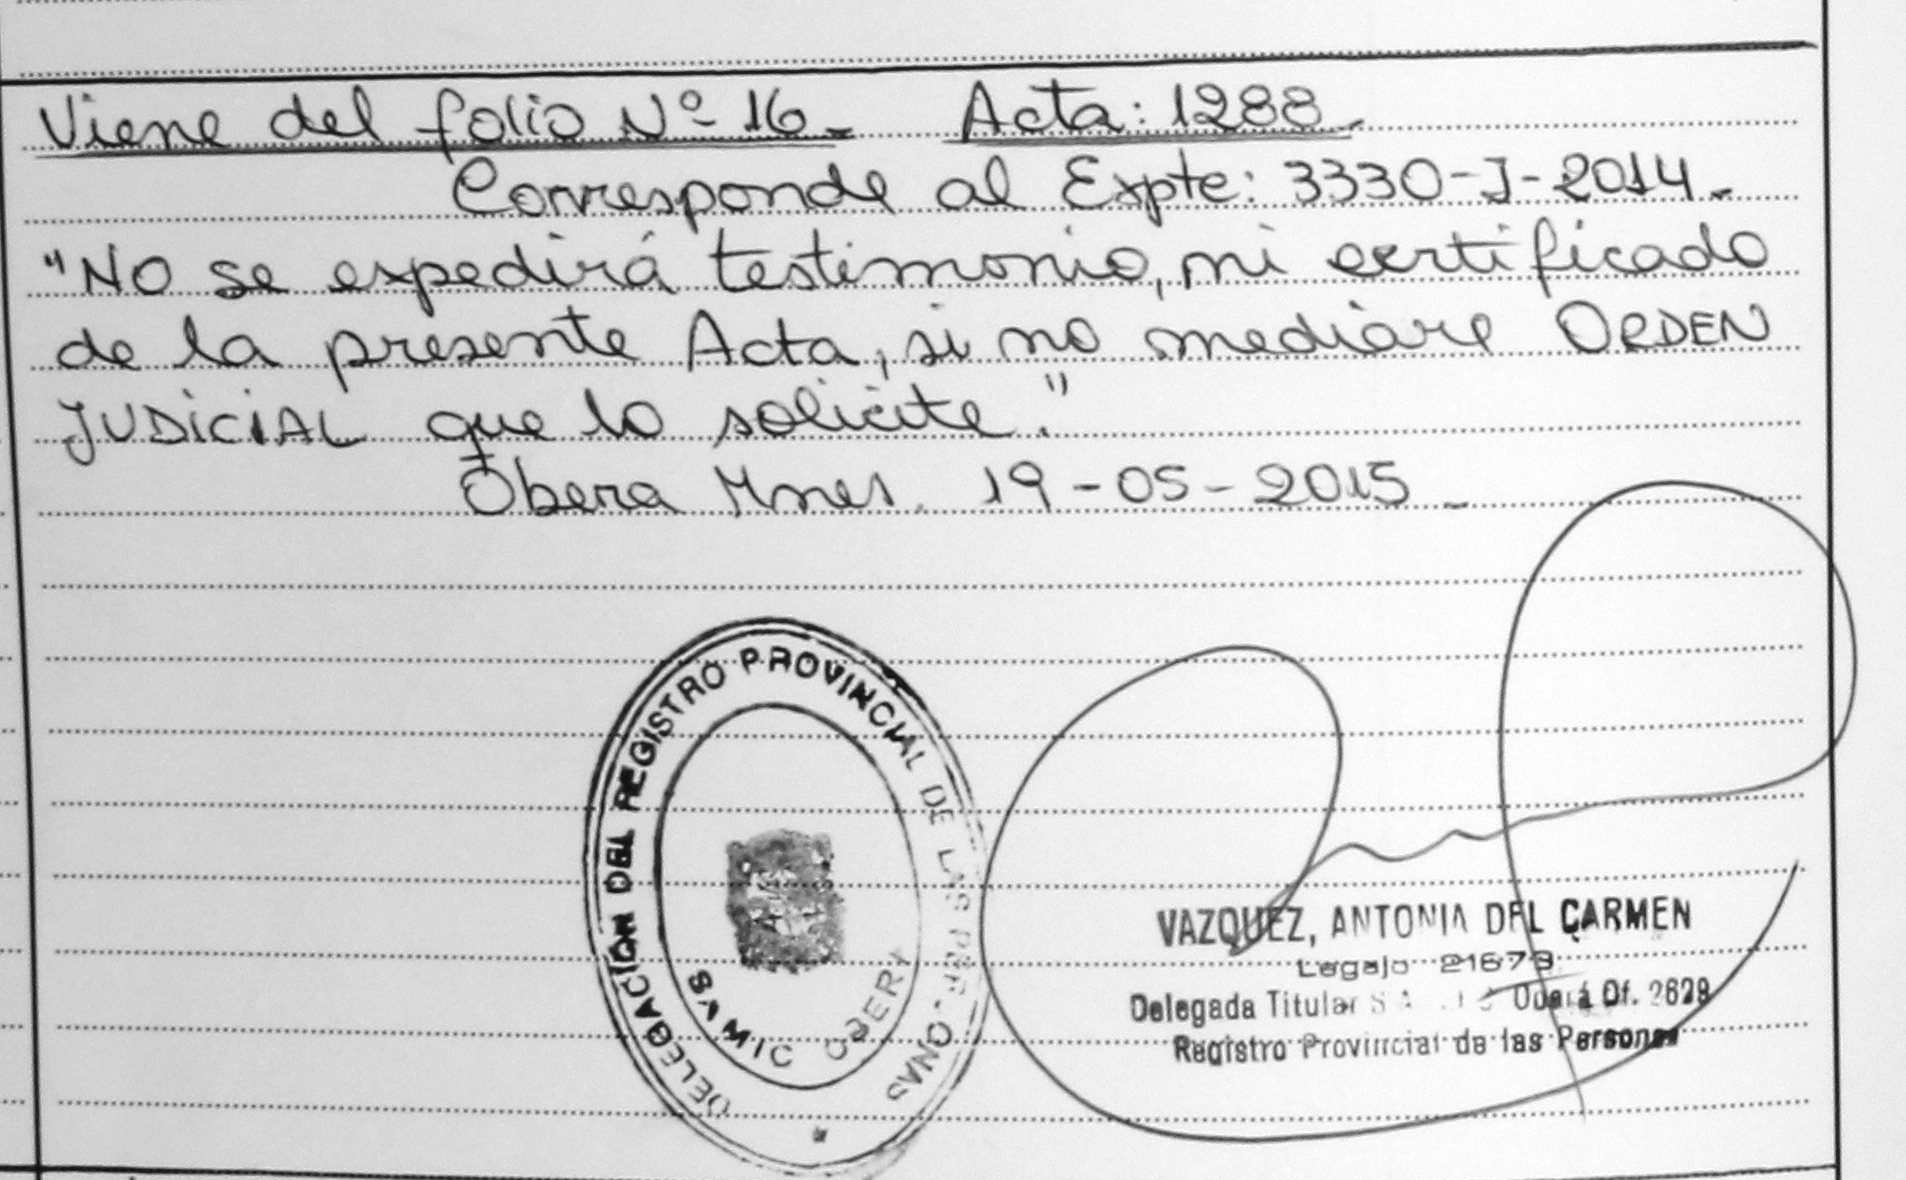 Viene del folio Nº 16. Acta: 1288.
Corresponde al Expte: 3330-J-2014.
"No se expedirá testimonio, ni certificado
de la presente Acta, si no mediare ORDEN
JUDICIAL que lo solicite."
Obera Mnes. 19-05-2015.
DELEGACIÓN DEL REGISTRO PROVINCIAL DE LAS PERSONAS
OBERA
VAZQUEZ, ANTONIA DEL CARMEN
Legajo 21673
Delegada Titular Oberá Of. 2629
Registro Provincial de las Personas